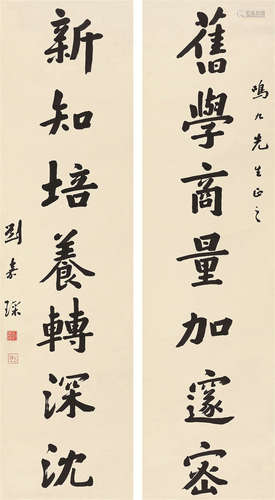 鳴九先生正之
舊學商量加邃密
新知培養轉深沈
劉嘉琛